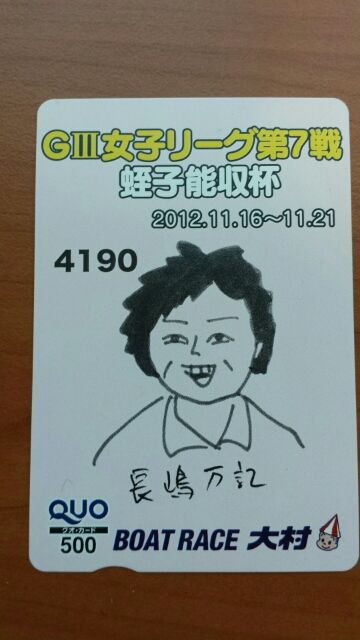 GⅢ女子リーグ第7戦
蛭子能収杯
2012.11.16～11.21
4190
長嶋万記
QUO
クオ・カード
500
BOAT RACE 大村